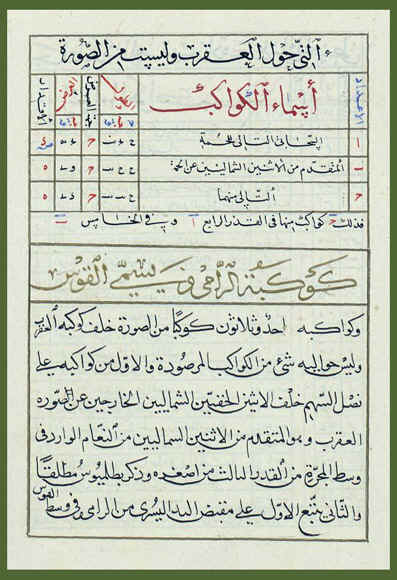 التي حول العقرب وليست من الصورة
الاعداد
أسماء الكواكب
الطول
العرض
الاقدار
ا التى التالى للحمة
ب المتقدم من الاثنين الشماليين عن
ح التالى منهما
فذلك ح كواكب منها فى القدر الرابع ا وب فى الخامس ب
كوكبة الرامى ويسمى القوس
وكواكبه احد وثلاثون كوكبًا من الصورة خلف كوكبه العقرب
وليس حواليه شئ من الكواكب المرصودة والاوّل من كواكبه على
نصل السهم خلف الاثنين الخفيين الشماليين الخارجين عن الصوره
العقرب وهو المتقدم من الاثنين الشماليين من النعام الوارد فى
وسط المجرّة من القدر الثالث من اصغره وذكر بطلميوس مطلقًا
والثانى يتبع الاوّل على مقبض اليد اليسرى من الرامى وفى وسط القوس